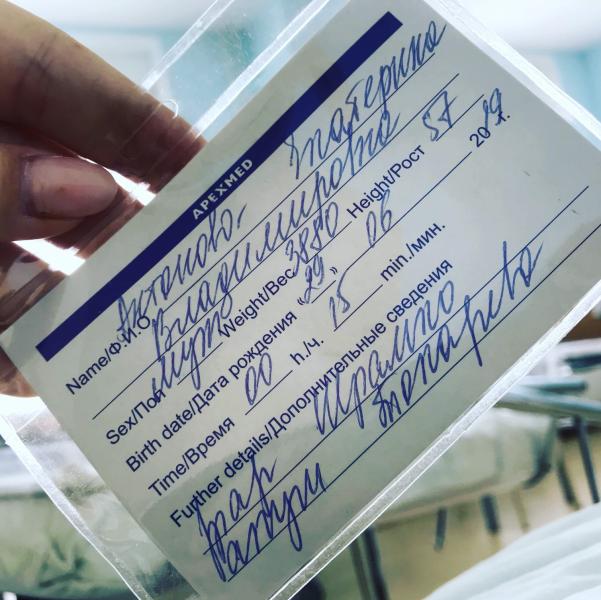 APEXMED
Name/Ф.И.О. Антонова Екатерина
Владимировна
Sex/Пол Муж Weight/Вес 3880 Height/Рост 57
Birth date/Дата рождения "29" 06 2019г.
Time/Время 00 h./ч. 15 min./мин.
Further details/Дополнительные сведения